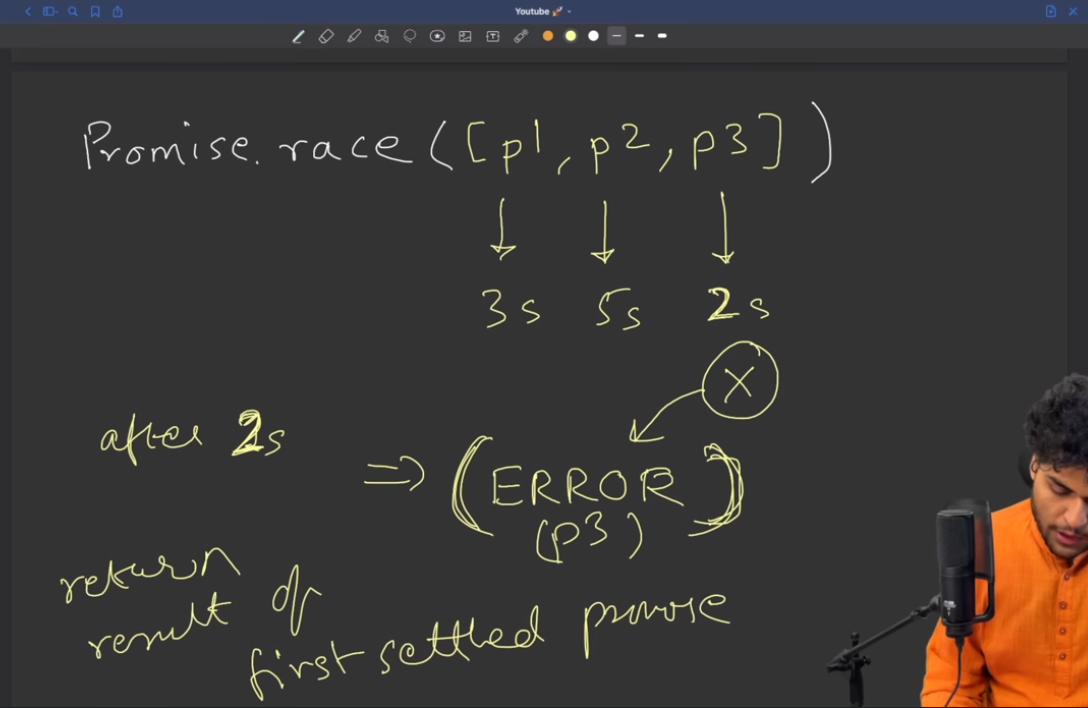 Youtube 🚀
Promise.race([p1, p2, p3])
3s 5s 2s
X
after 2s
=> (ERROR)
(p3)
return
result of
first settled promise